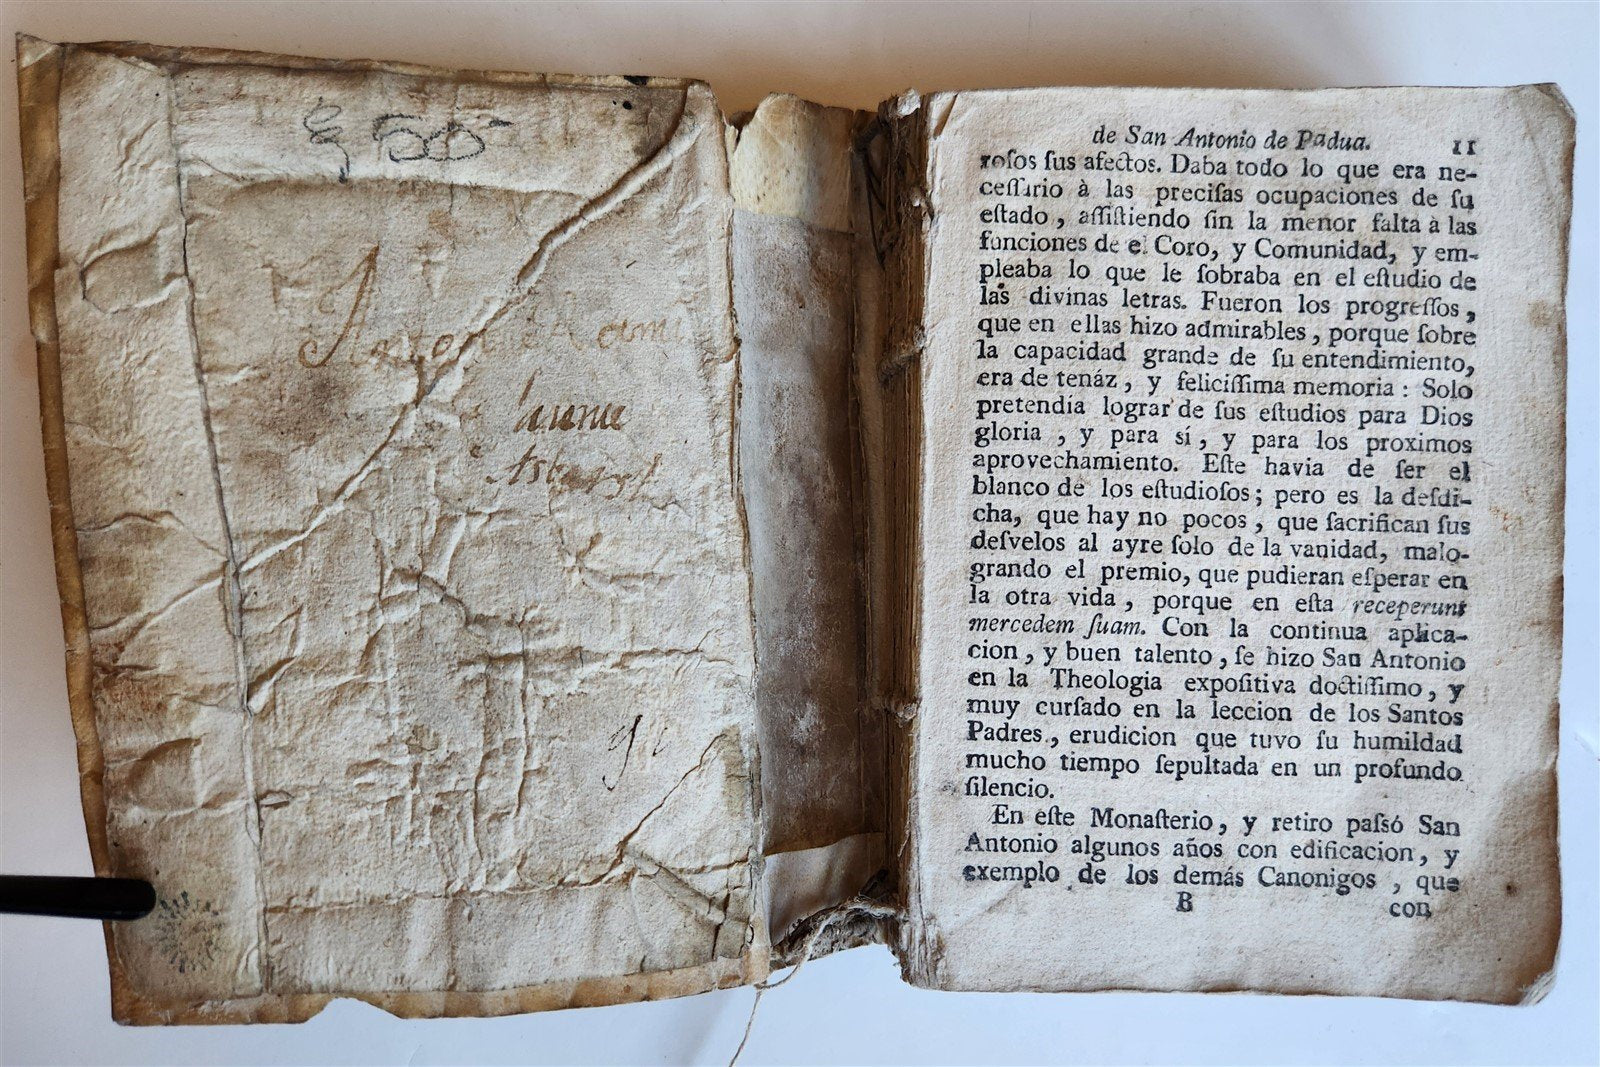 50
de San Antonio de Padua. 11
rosos ſus afectos. Daba todo lo que era ne-
ceſſario à las preciſas ocupaciones de ſu
eſtado, aſſiſtiendo ſin la menor falta à las
funciones de el Coro, y Comunidad, y em-
pleaba lo que le ſobraba en el eſtudio de
las divinas letras. Fueron los progreſſos,
que en ellas hizo admirables, porque ſobre
la capacidad grande de ſu entendimiento,
era de tenáz, y feliciſſima memoria: Solo
pretendia lograr de ſus eſtudios para Dios
gloria, y para sí, y para los proximos
aprovechamiento. Eſte havia de ſer el
blanco de los eſtudioſos; pero es la deſdi-
cha, que hay no pocos, que ſacrifican ſus
deſvelos al ayre ſolo de la vanidad, malo-
grando el premio, que pudieran eſperar en
la otra vida, porque en eſta receperunt
mercedem ſuam. Con la continua aplica-
cion, y buen talento, ſe hizo San Antonio
en la Theologia expoſitiva doctiſſimo, y
muy curſado en la leccion de los Santos
Padres, erudicion que tuvo ſu humildad
mucho tiempo ſepultada en un profundo
ſilencio.
En eſte Monaſterio, y retiro paſsó San
Antonio algunos años con edificacion, y
exemplo de los demás Canonigos, que
B con